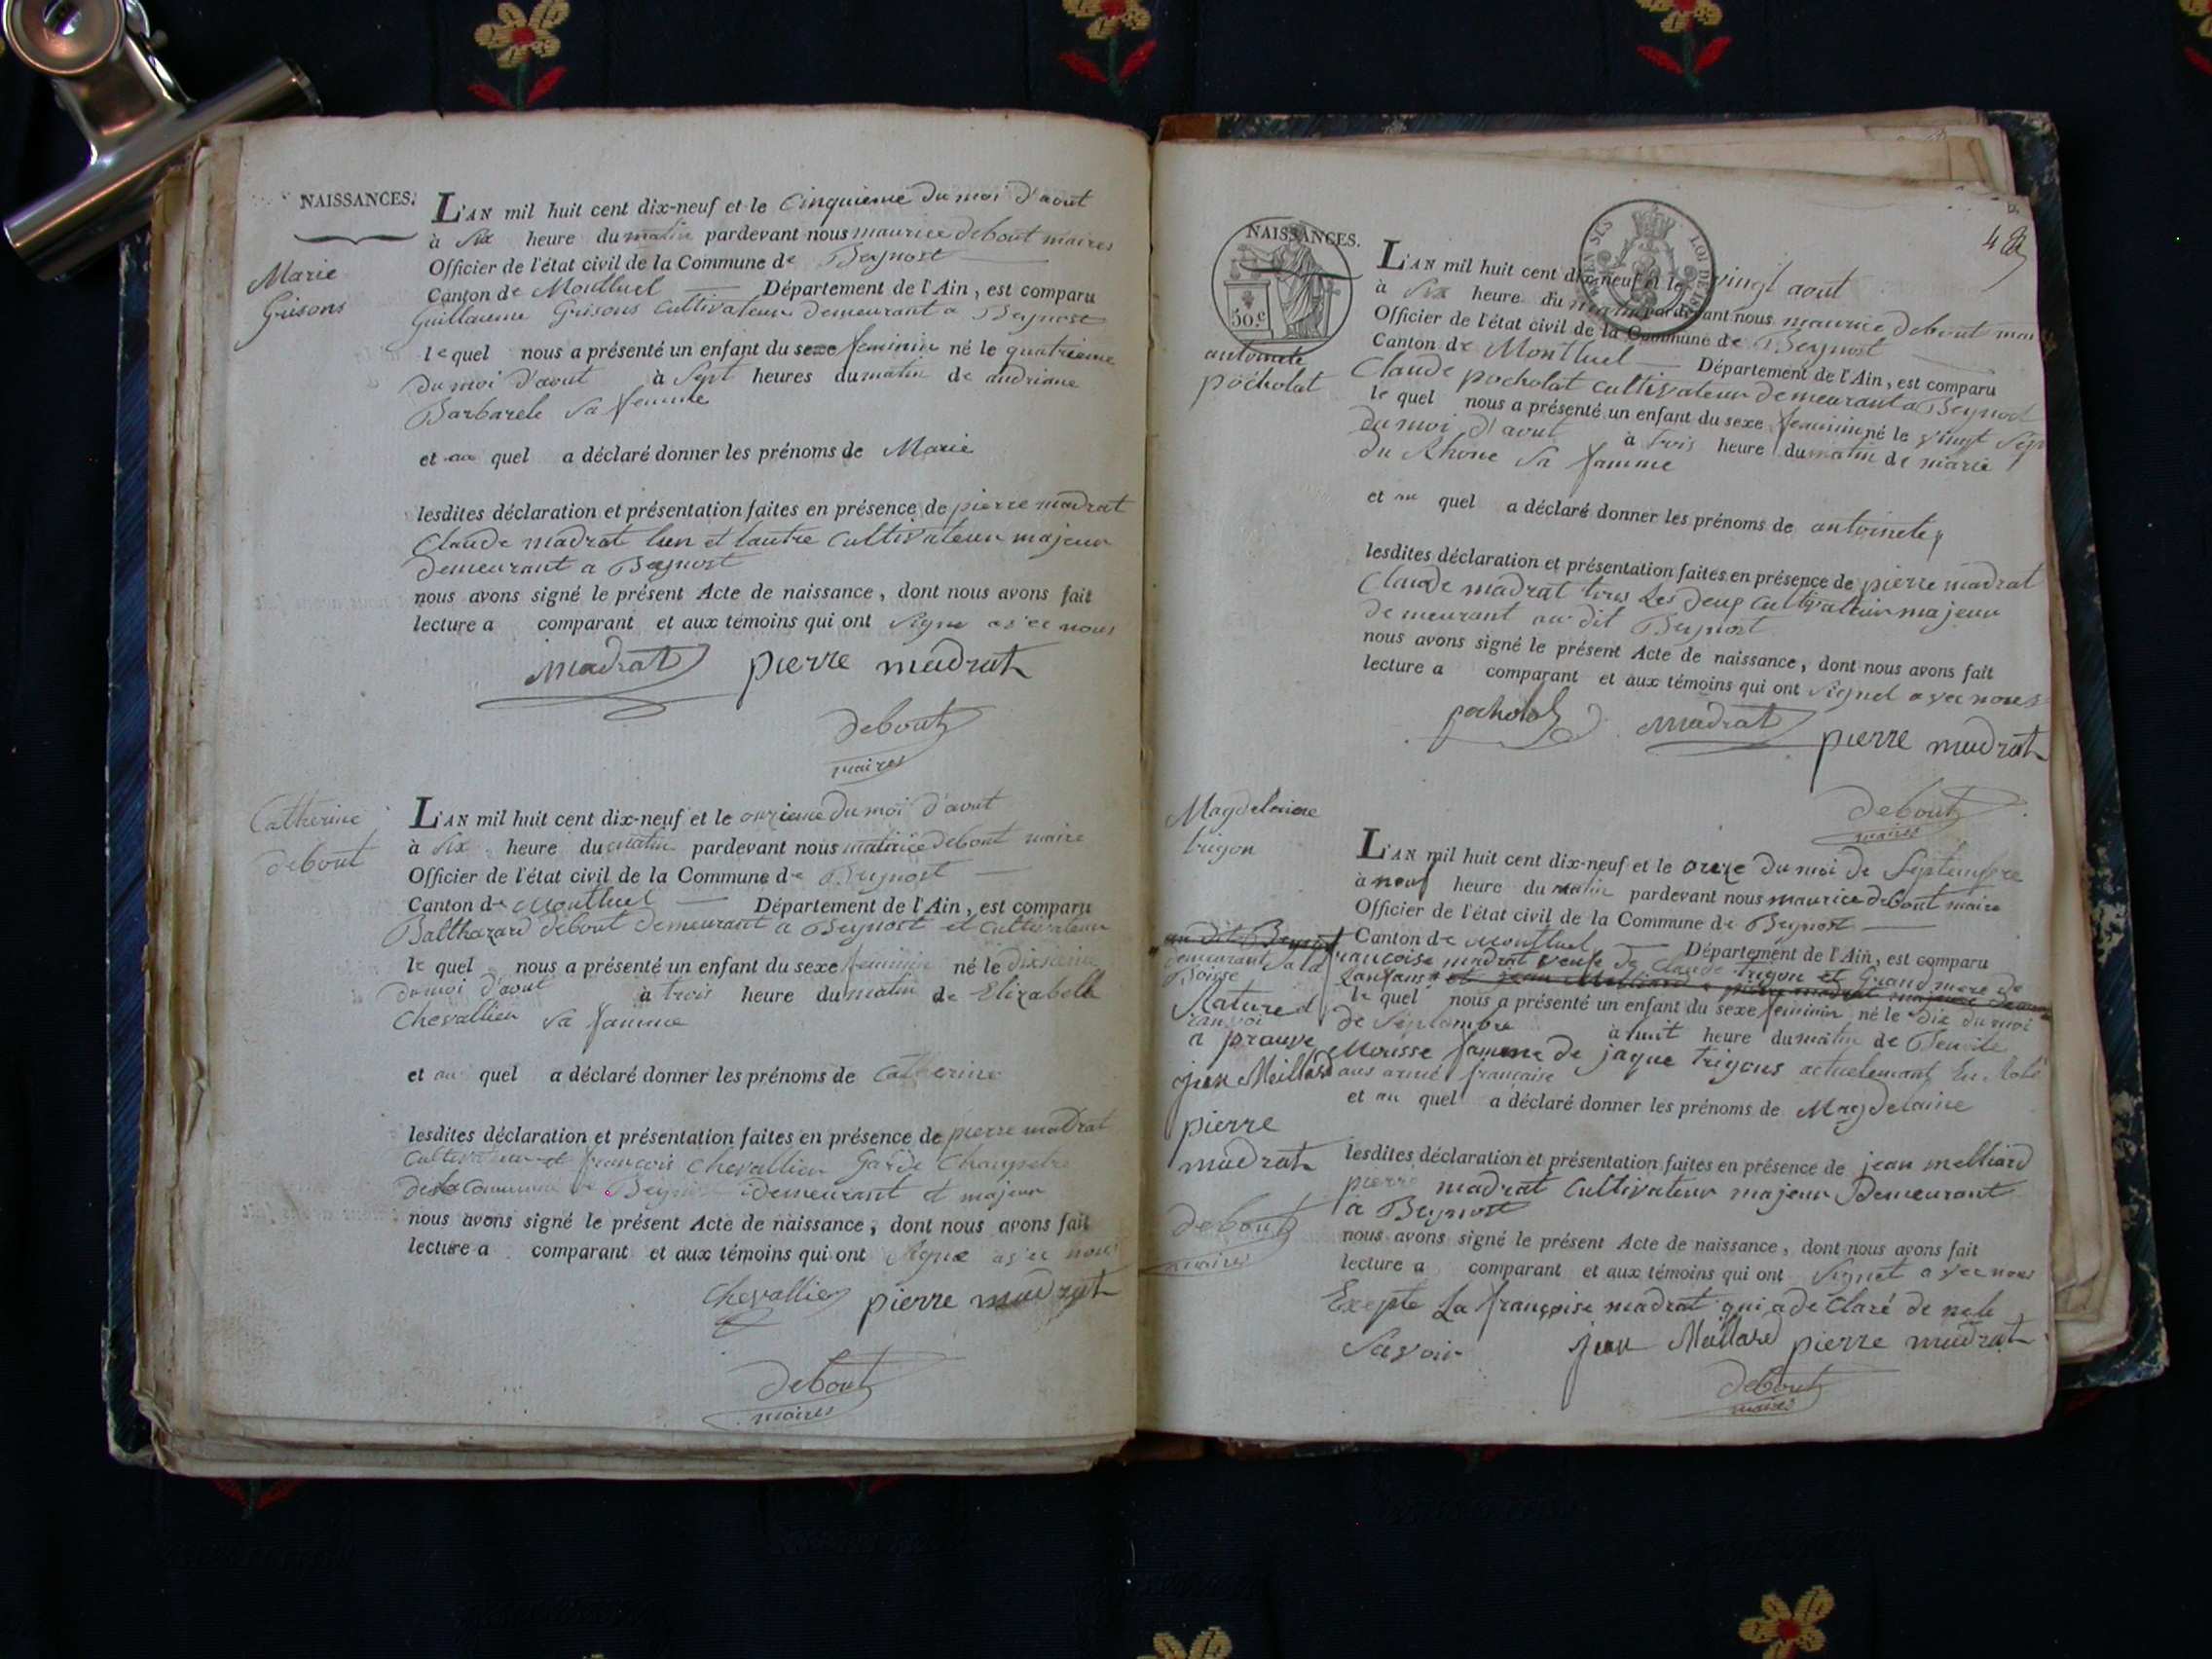 NAISSANCES.
Marie
Grisons
L'AN mil huit cent dix-neuf et le Cinquieme du moi d'aout
à Six heure du matin pardevant nous maurice debout maires
Officier de l'état civil de la Commune de Beynost
Canton de Montluel Département de l'Ain, est comparu
Guillaume Grisons Cultivateur demeurant a Beynost
lequel nous a présenté un enfant du sexe feminin né le quatrieme
du moi d'aout à Sept heures du matin de andriane
Barbarele Sa femme
et au quel a déclaré donner les prénoms de Marie
lesdites déclaration et présentation faites en présence de pierre madrat
Claude madrat lun et lautre Cultivateur majeur
demeurant a Beynost
nous avons signé le présent Acte de naissance, dont nous avons fait
lecture a comparant et aux témoins qui ont Signe avec nous
madrat pierre madrat
debout
maires
Catherine
debout
L'AN mil huit cent dix-neuf et le onzieme du moi d'aout
à Six heure du matin pardevant nous maurice debout maire
Officier de l'état civil de la Commune de Beynost
Canton de Montluel Département de l'Ain, est comparu
Balthazard debout demeurant a Beynost et Cultivateur
le quel nous a présenté un enfant du sexe feminin né le dixsieme
du moi d'aout à trois heure du matin de Elizabelt
Chevallier Sa famme
et au quel a déclaré donner les prénoms de Catherine
lesdites déclaration et présentation faites en présence de pierre madrat
Cultivateur et françois Chevallier Garde Champetre
de la Commune de Beynost demeurant et majeur
nous avons signé le présent Acte de naissance, dont nous avons fait
lecture a comparant et aux témoins qui ont Signe avec nous
Chevallier pierre madrat
debout
maires
48
NAISSANCES.
50.c
LOI DE 18
antoinete
pocholat
L'AN mil huit cent dix-neuf et le vingt aout
à Six heure du matin pardevant nous maurice debout mair
Officier de l'état civil de la Commune de Beynost
Canton de Montluel Département de l'Ain, est comparu
Claude pocholat Cultivateur demeurant a Beynost
le quel nous a présenté un enfant du sexe feminin né le vingt Sep
du moi d'aout à trois heure du matin de marie
du Rhone Sa famme
et au quel a déclaré donner les prénoms de antoinete
lesdites déclaration et présentation faites en présence de pierre madrat
Claude madrat tous Les deux Cultivateur majeur
demeurant au dit Beynost
nous avons signé le présent Acte de naissance, dont nous avons fait
lecture a comparant et aux témoins qui ont Signet avec nous
pocholat madrat pierre madrat
debout
maires
Magdelaine
trigon
L'AN mil huit cent dix-neuf et le onze du moi de Septembre
à neuf heure du matin pardevant nous maurice debout maire
Officier de l'état civil de la Commune de Beynost
Canton de Montluel Département de l'Ain, est comparu
françoise madrat veuve de Claude trigon et Grand mere de
Lanfans et jean Melliard pierre madrat majeur
le quel nous a présenté un enfant du sexe feminin né le dix du moi
de Septembre à huit heure du matin de Benoite
Morisse famme de jaque trigons actuelemant En
aus armé française
et au quel a déclaré donner les prénoms de Magdelaine
lesdites déclaration et présentation faites en présence de jean melliard
pierre madrat Cultivateur majeur Demeurant
à Beynost
nous avons signé le présent Acte de naissance, dont nous avons fait
lecture a comparant et aux témoins qui ont Signet avec nous
Exepte La françoise madrat qui a de Claré de nele
Savoir jean Meillard pierre madrat
debout
maires
au dit Beynost
demeurant a la
Boisse
Rature et
ranvoi
a prauve
jean Meillard
pierre
madrat
debout
maires